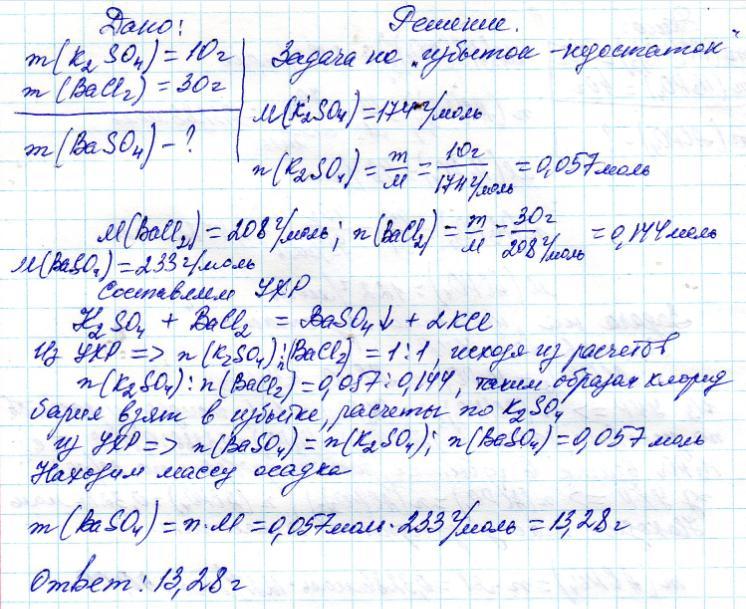 Дано:
Решение.
m(K₂SO₄) = 10г
m(BaCl₂) = 30г
m(BaSO₄) - ?
Задача на „избыток - недостаток"
M(K₂SO₄) = 174 г/моль
n(K₂SO₄) = m/M = 10г/174 г/моль = 0,057 моль
M(BaCl₂) = 208 г/моль; n(BaCl₂) = m/M = 30г/208 г/моль = 0,144 моль
M(BaSO₄) = 233 г/моль
Составляем УХР
K₂SO₄ + BaCl₂ = BaSO₄↓ + 2KCl
Из УХР => n(K₂SO₄):n(BaCl₂) = 1:1, исходя из расчетов
n(K₂SO₄) : n(BaCl₂) = 0,057 : 0,144, таким образом хлорид
бария взят в избытке, расчеты по K₂SO₄
из УХР => n(BaSO₄) = n(K₂SO₄); n(BaSO₄) = 0,057 моль
Находим массу осадка
m(BaSO₄) = n·M = 0,057 моль · 233 г/моль = 13,28 г
Ответ: 13,28 г